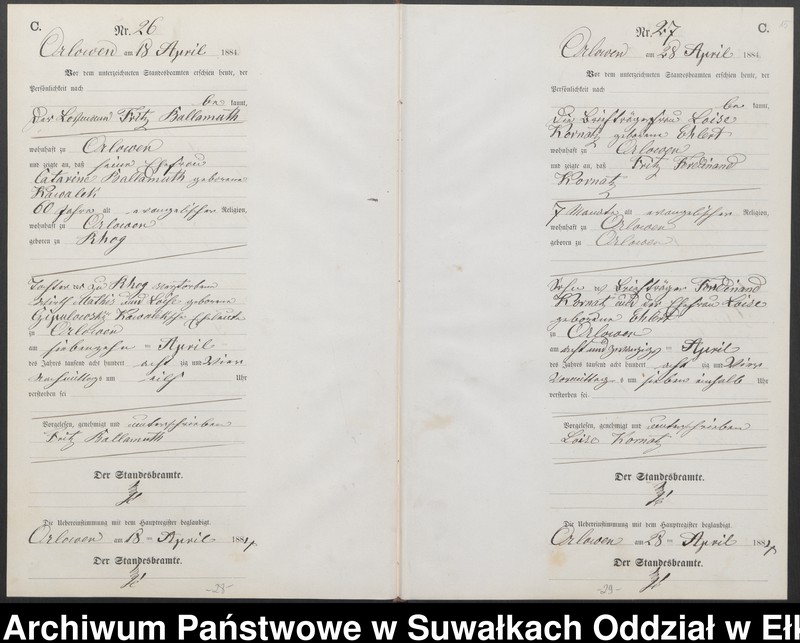 C.
Nr. 26
Orlowen am 18 April 1884.
Vor dem unterzeichneten Standesbeamten erschien heute, der
Persönlichkeit nach
be kannt,
Der Losmann Fritz Ballamuth
wohnhaft zu Orlowen
und zeigte an, daß seine Ehefrau
Catarine Ballamuth geborene
Kawalek
60 Jahre alt evangelischer Religion,
wohnhaft zu Orlowen
geboren zu Rhog
Tochter zu Rhog verstorbenen
Wirth und geborene
Eheleute
zu Orlowen
am siebenzehn ten April
des Jahres tausend acht hundert acht zig und vier
Nachmittags um eilf Uhr
verstorben sei
Vorgelesen, genehmigt und unterschrieben
Fritz Ballamuth
Der Standesbeamte.
Die Uebereinstimmung mit dem Hauptregister beglaubigt.
Orlowen am 18 ten April 1884
Der Standesbeamte.
-28-
C.
Nr. 27
Orlowen am 28 April 1884.
Vor dem unterzeichneten Standesbeamten erschien heute, der
Persönlichkeit nach
be kannt,
Die Briefträgerfrau Loise
Kornatz geborene Ehlert
wohnhaft zu Orlowen
und zeigte an, daß Fritz Ferdinand
Kornatz
7 Monate alt evangelischer Religion,
wohnhaft zu Orlowen
geboren zu Orlowen
Sohn des Briefträger Ferdinand
Kornatz und der Ehefrau Loise
geborene Ehlert
zu Orlowen
am acht und zwanzig ten April
des Jahres tausend acht hundert acht zig und vier
Vormittags um sieben einhalb Uhr
verstorben sei
Vorgelesen, genehmigt und unterschrieben
Loise Kornatz
Der Standesbeamte.
Die Uebereinstimmung mit dem Hauptregister beglaubigt.
Orlowen am 28 ten April 1884
Der Standesbeamte.
-29-
Archiwum Państwowe w Suwałkach Oddział w Eł